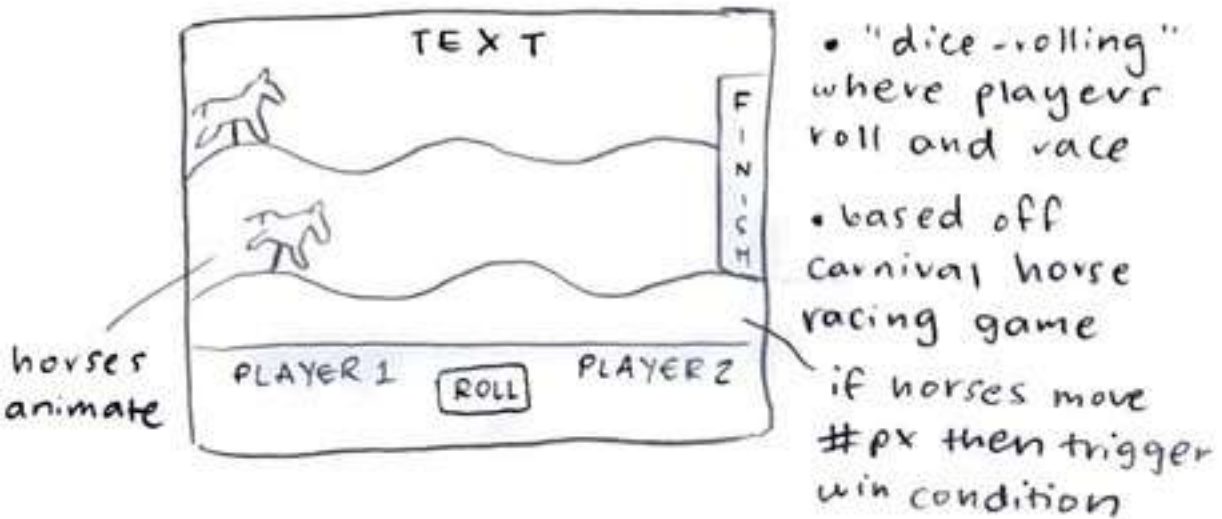 TEXT
FINISH
PLAYER 1
ROLL
PLAYER 2
horses
animate
• "dice-rolling"
where players
roll and race
• based off
carnival horse
racing game
if horses move
#px then trigger
win condition